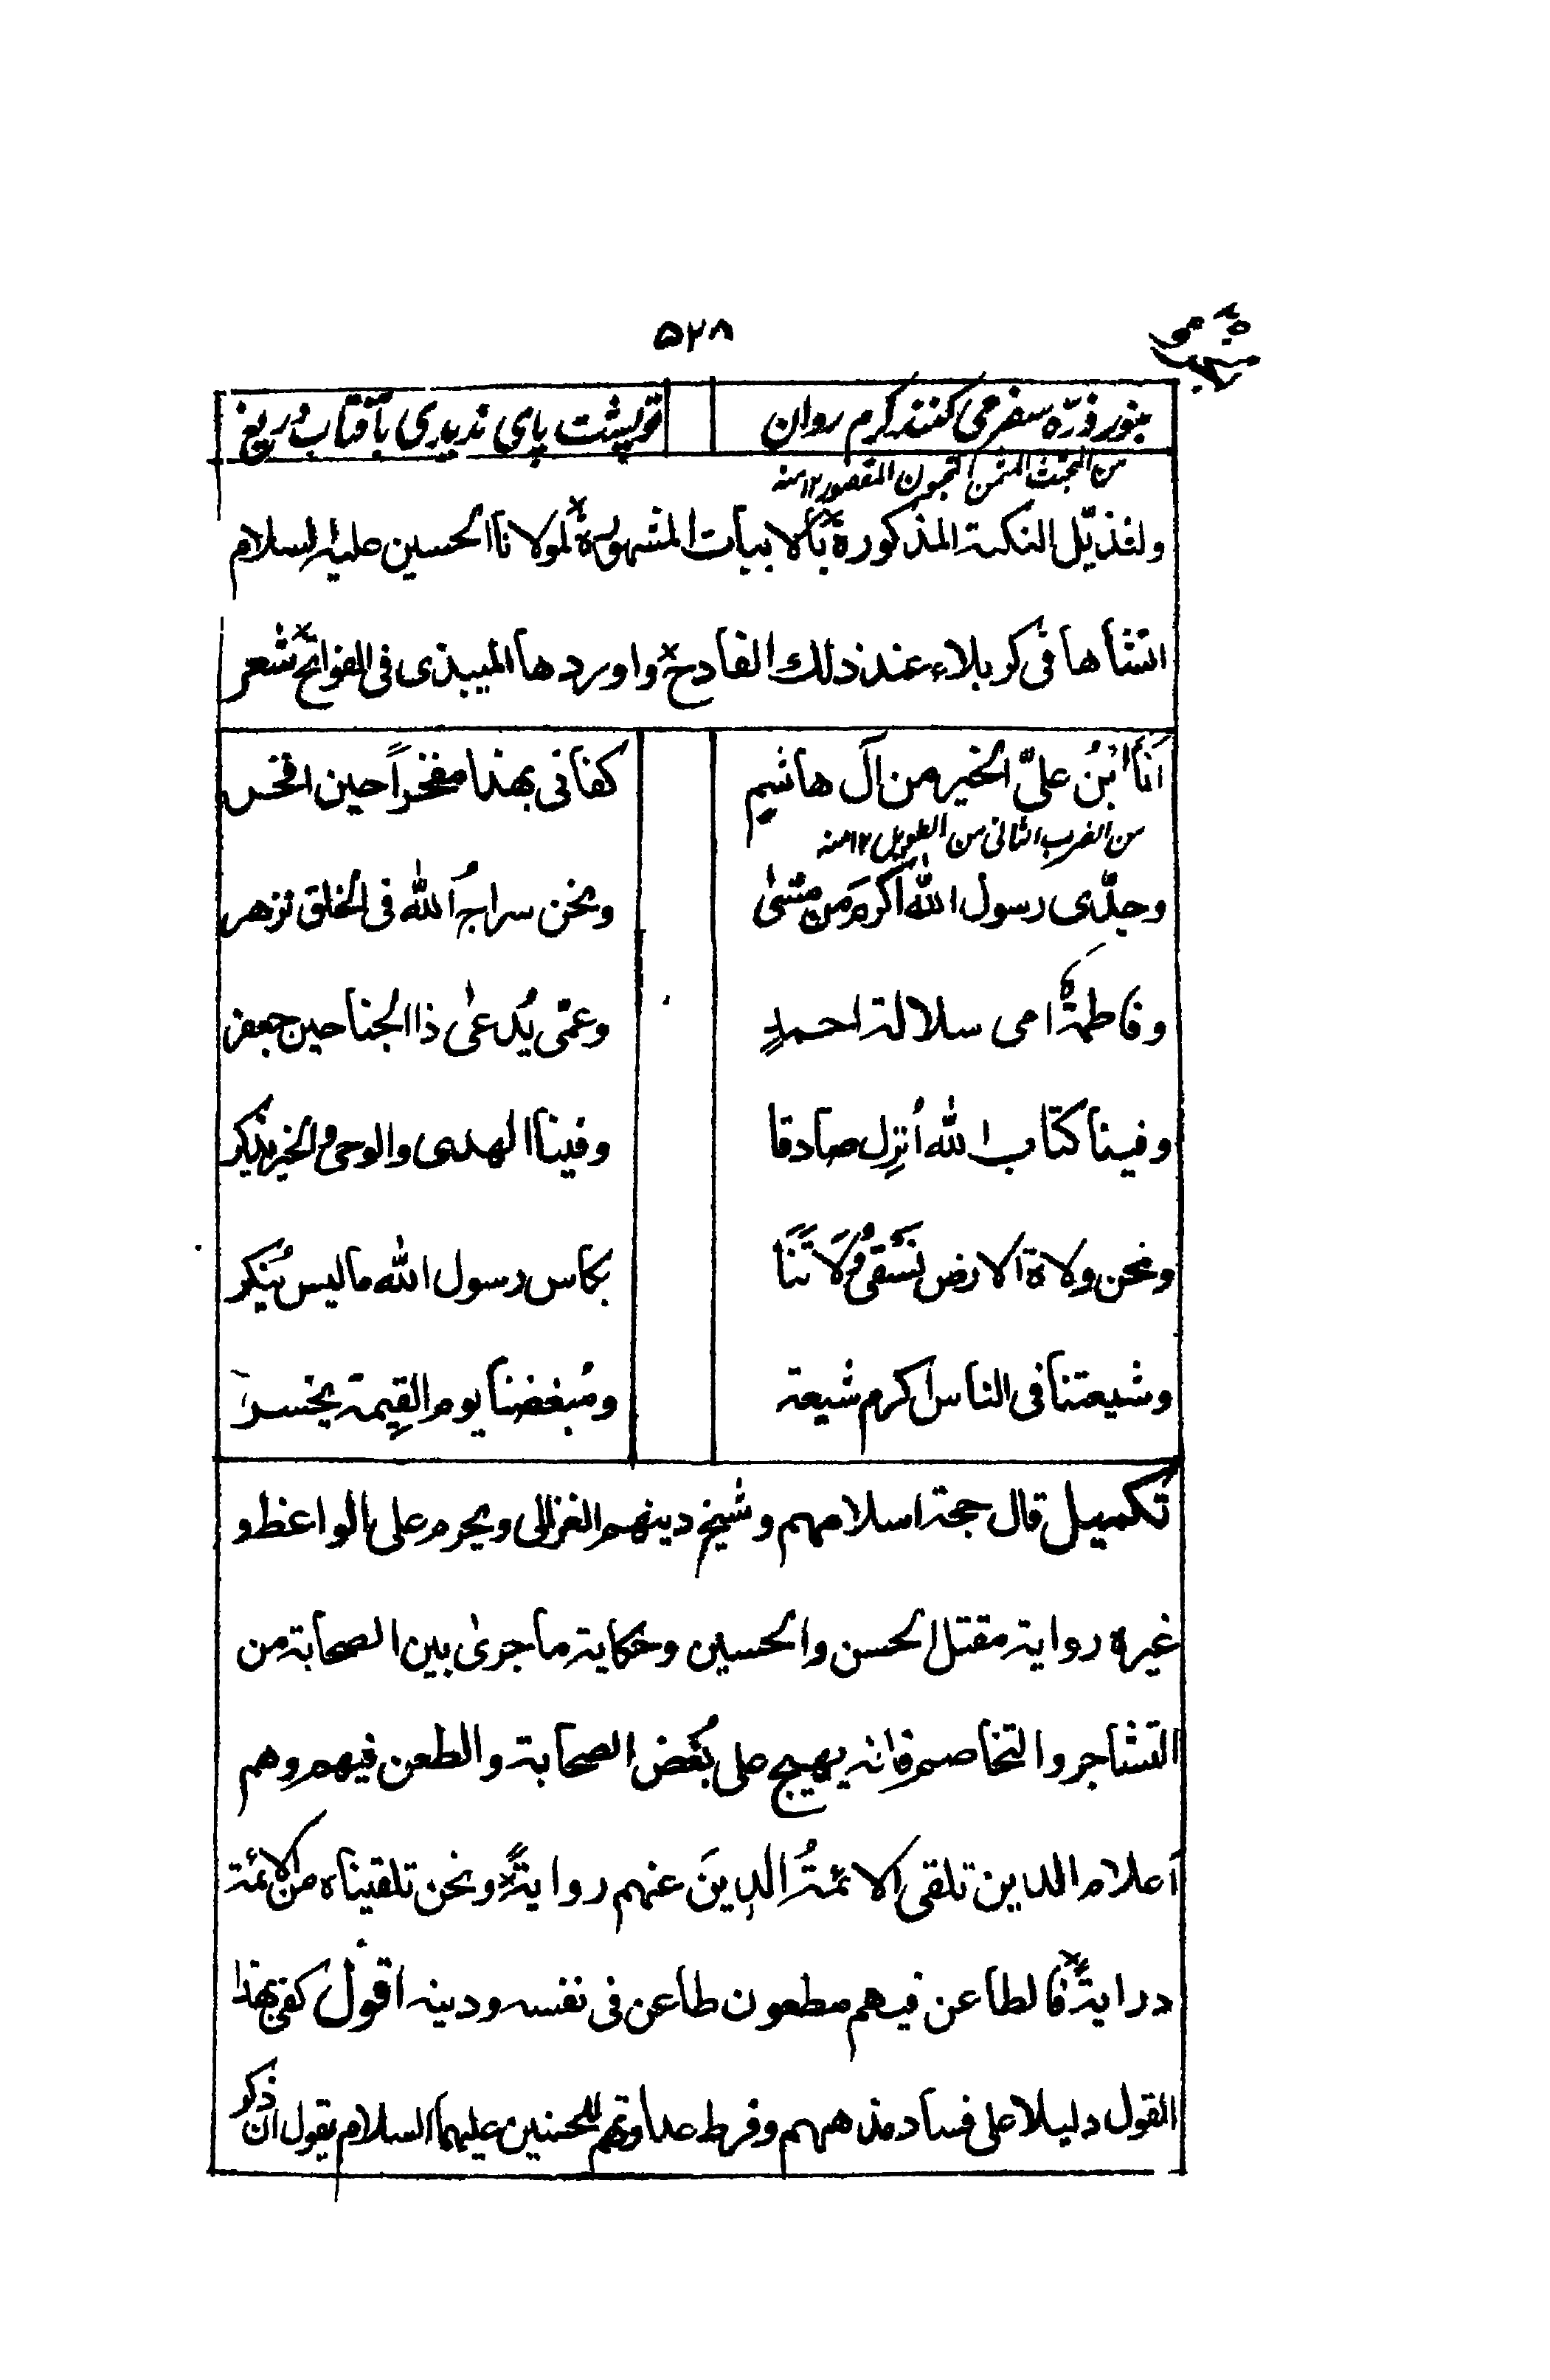 ۵۲۸
بنور ذرّه سفر می کنند گرم روان تو پشت پای ندیدی بآفتاب دریغ
من المجتث المثمن المخبون المقصور ۱۲ منه
ولنذیّل النکتة المذکورة بالابیات المشهورة لمولانا الحسین علیه السلام
انشأها فی کربلاء عند ذلك الفادح واوردها المیبذی فی الفواتح شعر
اَنَا ابْنُ علیِّ الخیر من آل هاشم کفانی بهذا مفخراً حین افخر
من الضرب الثانی من الطویل ۱۲ منه
وجدّی رسول الله اکرمَ من مشیٰ ونحن سراجُ الله فی الخلق نزهر
وفاطمةُ امی سلالة احمدٍ وعمّی یُدعیٰ ذا الجناحین جعفر
وفینا کتاب الله اُنزِل صادقا وفینا الهدی والوحی والخیر یذکر
ونحن ولاة الارض نَسْقی وُلَاتَنَا بکاس رسول الله مالیس یُنکر
وشیعتنا فی الناس اکرم شیعة ومُبغضنا یوم القِیمة یخسر
تکمیل قال حجة اسلامهم وشیخ دینهم الغزالی ویحرم علی الواعظ و
غیره روایة مقتل الحسن والحسین وحکایة ما جریٰ بین الصحابة من
التشاجر والتخاصم فانه یهیج علی بُغض الصحابة والطعن فیهم وهم
اَعلام الدین تلقی الائمةُ الدِینَ عنهم روایةً ونحن تلقیناه من الائمة
درایةً فالطاعن فیهم مطعون طاعن فی نفسه ودینه اقول کفی بهذا
القول دلیلا علی فساد مذهبهم وفرط عداوتهم للحسنین علیهما السلام یقول ان ذکر